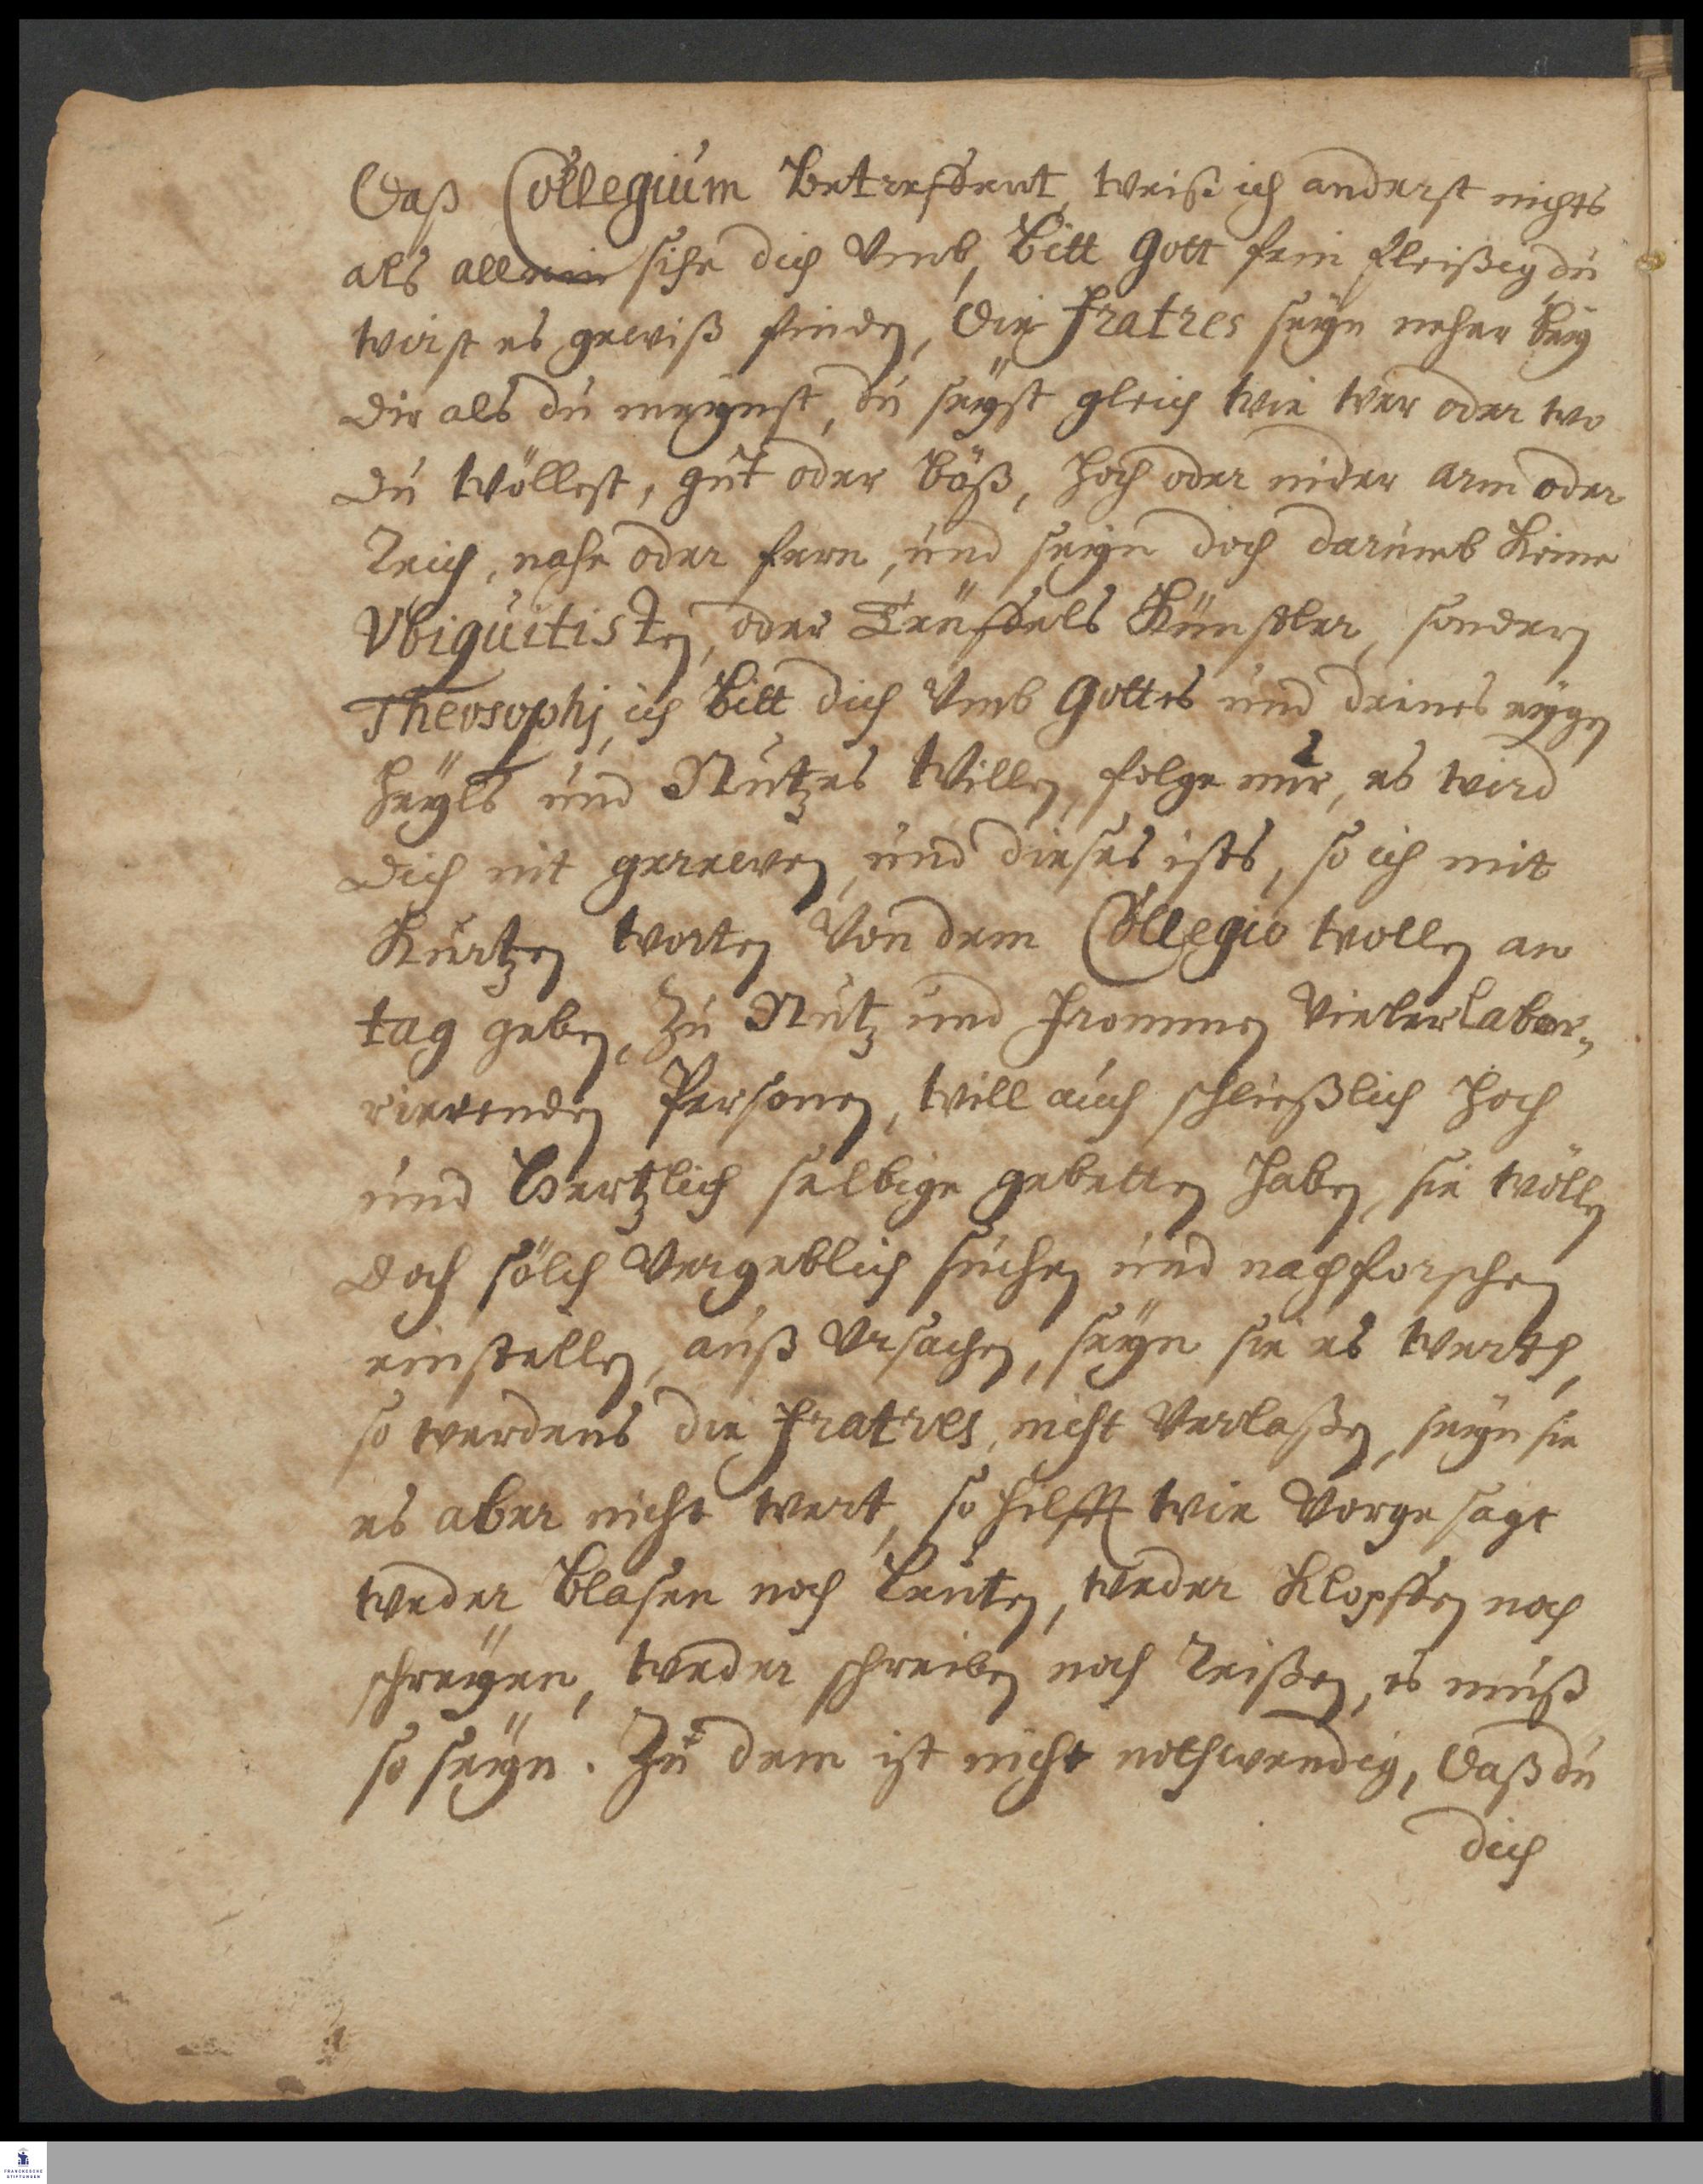 Daß Collegium betreffent, weiß ich anderst nichts
als allein sihe dich Vmb, bitt Gott fein fleißig du
wirst es gewiß finden, Die Fratres seÿn neher beÿ
dir als du meÿnst, du seÿst gleich wie wer oder wo
du wöllest, gut oder böß, hoch oder nider arm oder
Reich, nahe oder fern, und seÿn doch darumb Keine
Vbiquitisten, oder Teuffels Künstler, sondern
Theosophj, ich bitt dich Vmb Gottes und deines eÿgen
Heÿls und Nutzes Willen, folge mir, es wird
dich nit gerewen, und dieses ists, so ich mit
Kurtzen Worten Von dem Collegio wollen an
tag geben, Zu Nutz und Frommen Vieler Labor¬
rierenden Personen, will auch schließlich hoch
und Hertzlich selbige gebetten haben, sie wöllen
doch sölch Vergeblich suchen und nachforschen
einstellen, auß Vrsachen, seÿn sie es werth,
so werdens die Fratres, nicht Verlaßen, seÿn sie
es aber nicht wert, so hilfft wie Vorgesagt
weder blasen noch Leuten, weder Klopffen noch
schreÿen, weder schreiben noch Reißen, es muß
so seÿn. Zu dem ist nicht nothwendig, Daß du
dich
FRANCKESCHE
STIFTUNGEN